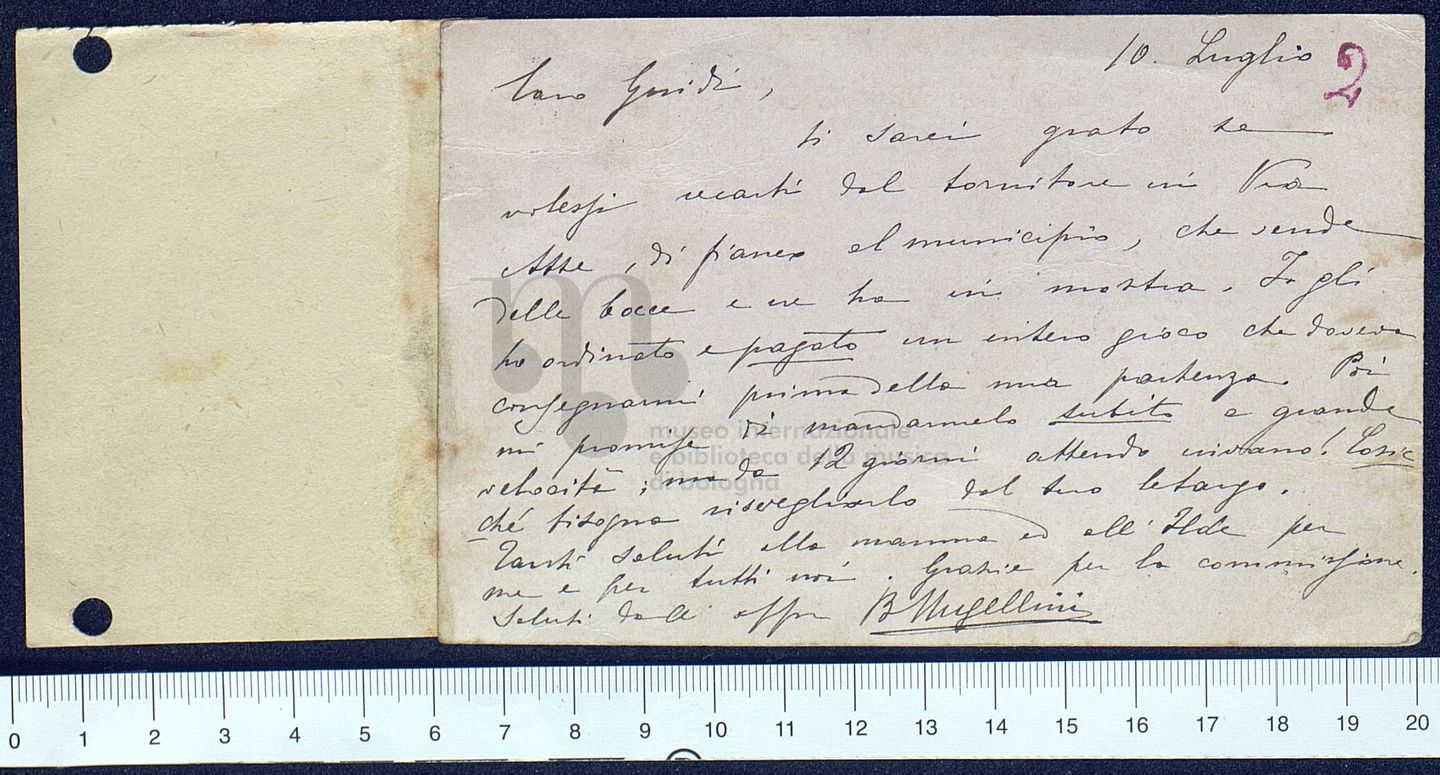 10. Luglio 2
Caro Guidi,
ti sarei grato se
volessi recarti dal tornitore in Via
Asse, di fianco al municipio, che vende
delle bocce e ne ha in mostra. Io gli
ho ordinato e pagato un intero gioco che doveva
consegnarmi prima della mia partenza. Poi
mi promise di mandarmelo subito a grande
velocità; ma da 12 giorni attendo invano! Cosic
ché bisogna risvegliarlo dal suo letargo.
Tanti saluti alla mamma ed all'Ilde per
me e per tutti noi. Grazie per la commissione.
Saluti dall' affmo BMugellini
museo internazionale
e biblioteca della musica
di bologna
0 1 2 3 4 5 6 7 8 9 10 11 12 13 14 15 16 17 18 19 20